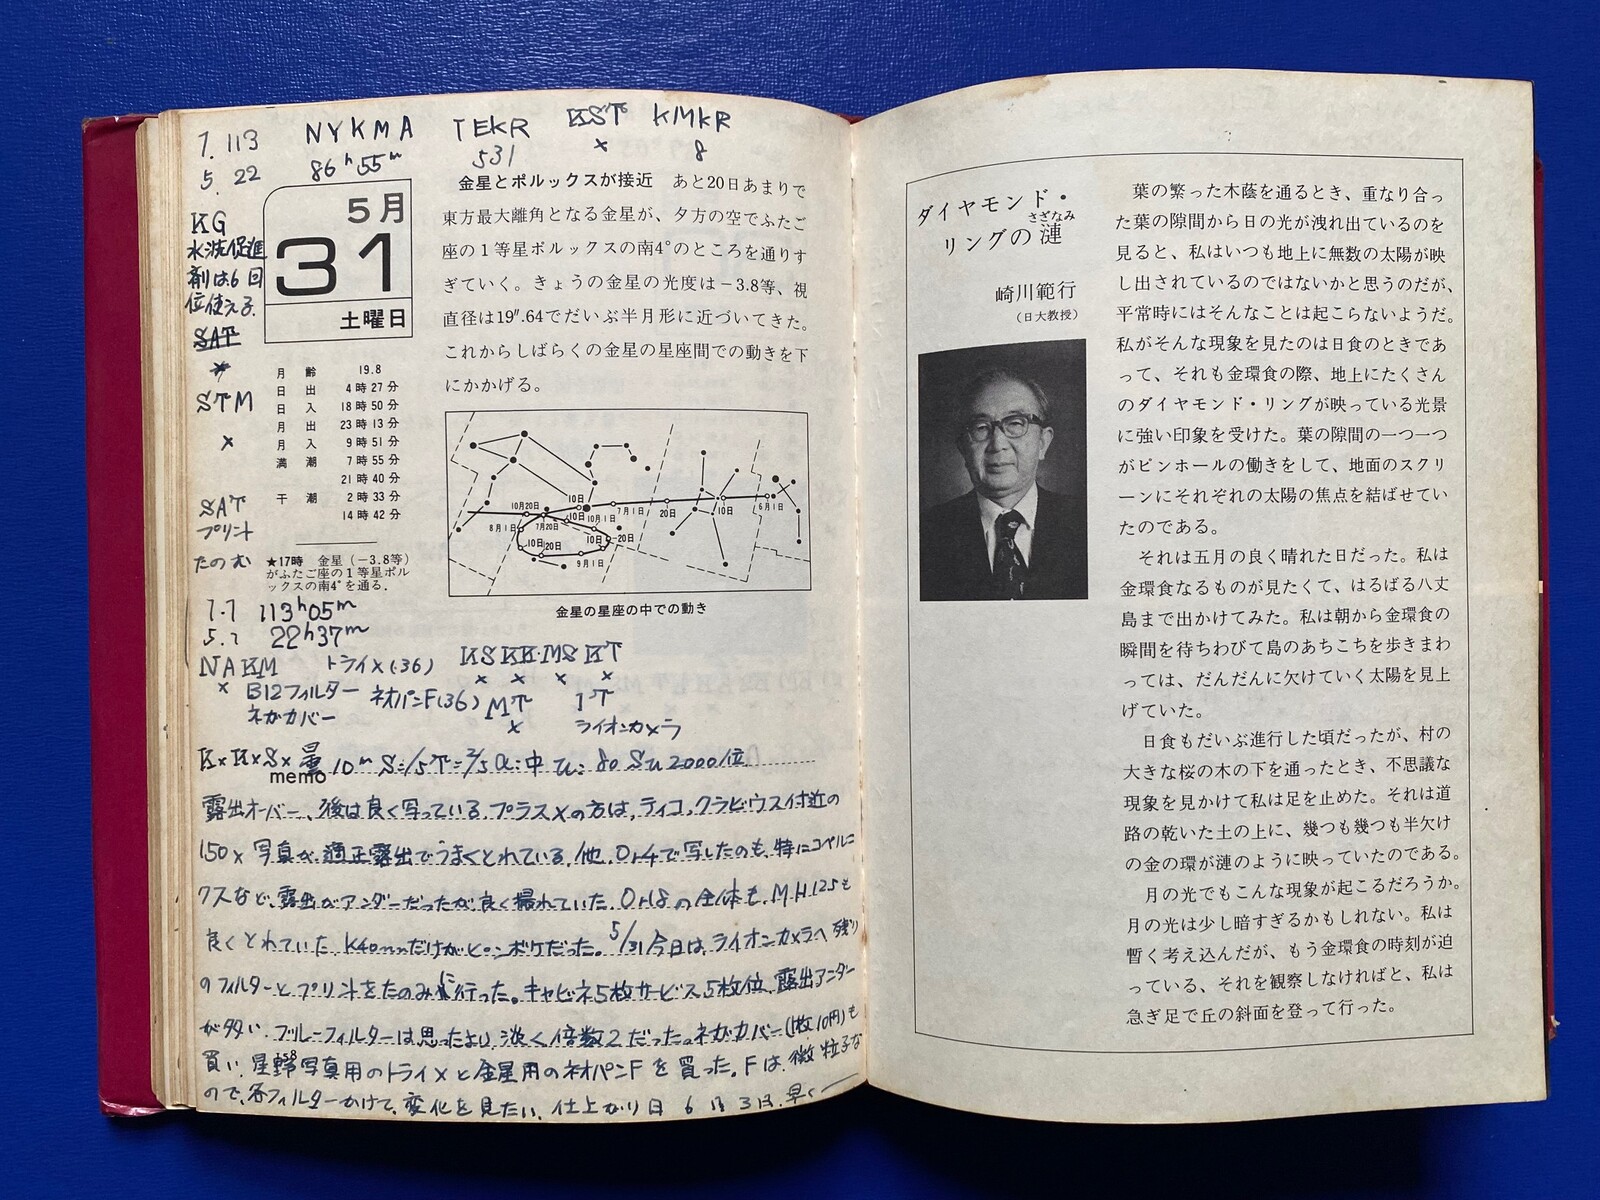 7.113 NYKMA TEKR KST KMKR
5.22 86h55m 531 × 8
KG
水洗促進
剤は6回
位使える.
SAT
×
STM
×
SAT
プリント
たのむ
5月
31
土曜日
月齢 19.8
日出 4時27分
日入 18時50分
月出 23時13分
月入 9時51分
満潮 7時55分
21時40分
干潮 2時33分
14時42分
★17時 金星(−3.8等)
がふたご座の1等星ポル
ックスの南4°を通る.
金星とポルックスが接近 あと20日あまりで
東方最大離角となる金星が、夕方の空でふたご
座の1等星ポルックスの南4°のところを通りす
ぎていく。きょうの金星の光度は−3.8等、視
直径は19″.64でだいぶ半月形に近づいてきた。
これからしばらくの金星の星座間での動きを下
にかかげる。
10月20日 10日 7月1日 20日 10日 6月1日
8月1日 7月20日 10日 10月1日
10日 20日 10日 20日
9月1日
金星の星座の中での動き
7.7 113h05m
5.7 22h37m
NAKM トライX(36) KS KK MS KT
× B12フィルター ネオパンF(36) × × × ×
ネガカバー MT IT
× ライオンカメラ
K×K×S×
memo
露出オーバー、後は良く写っている.プラスXの方は,ティコ,クラビウス付近の
150×写真が,適正露出でうまくとれている.他.Or4で写したのも,特にコペルニ
クスなど、露出がアンダーだったが良く撮れていた.Or18の全体も,MH12.5も
良くとれていた.K40mmだけがピンボケだった。5/31今日は,ライオンカメラへ残り
のフィルターとプリントをたのみに行った。キャビネ5枚サービス5枚位.露出アンダー
が多い.ブルーフィルターは思ったより淡く倍数2だった。ネガカバー(1枚10円)も
買い,星野写真用のトライXと金星用のネオパンFを買った。Fは,微粒子な
ので,各フィルターかけて,変化を見たい.仕上がり日 6月3日.早く
ダイヤモンド・
さざなみ
リングの漣
崎川範行
(日大教授)
葉の繁った木蔭を通るとき、重なり合っ
た葉の隙間から日の光が洩れ出ているのを
見ると、私はいつも地上に無数の太陽が映
し出されているのではないかと思うのだが、
平常時にはそんなことは起こらないようだ。
私がそんな現象を見たのは日食のときであ
って、それも金環食の際、地上にたくさん
のダイヤモンド・リングが映っている光景
に強い印象を受けた。葉の隙間の一つ一つ
がピンホールの働きをして、地面のスクリ
ーンにそれぞれの太陽の焦点を結ばせてい
たのである。
それは五月の良く晴れた日だった。私は
金環食なるものが見たくて、はるばる八丈
島まで出かけてみた。私は朝から金環食の
瞬間を待ちわびて島のあちこちを歩きまわ
っては、だんだんに欠けていく太陽を見上
げていた。
日食もだいぶ進行した頃だったが、村の
大きな桜の木の下を通ったとき、不思議な
現象を見かけて私は足を止めた。それは道
路の乾いた土の上に、幾つも幾つも半欠け
の金の環が漣のように映っていたのである。
月の光でもこんな現象が起こるだろうか。
月の光は少し暗すぎるかもしれない。私は
暫く考え込んだが、もう金環食の時刻が迫
っている、それを観察しなければと、私は
急ぎ足で丘の斜面を登って行った。